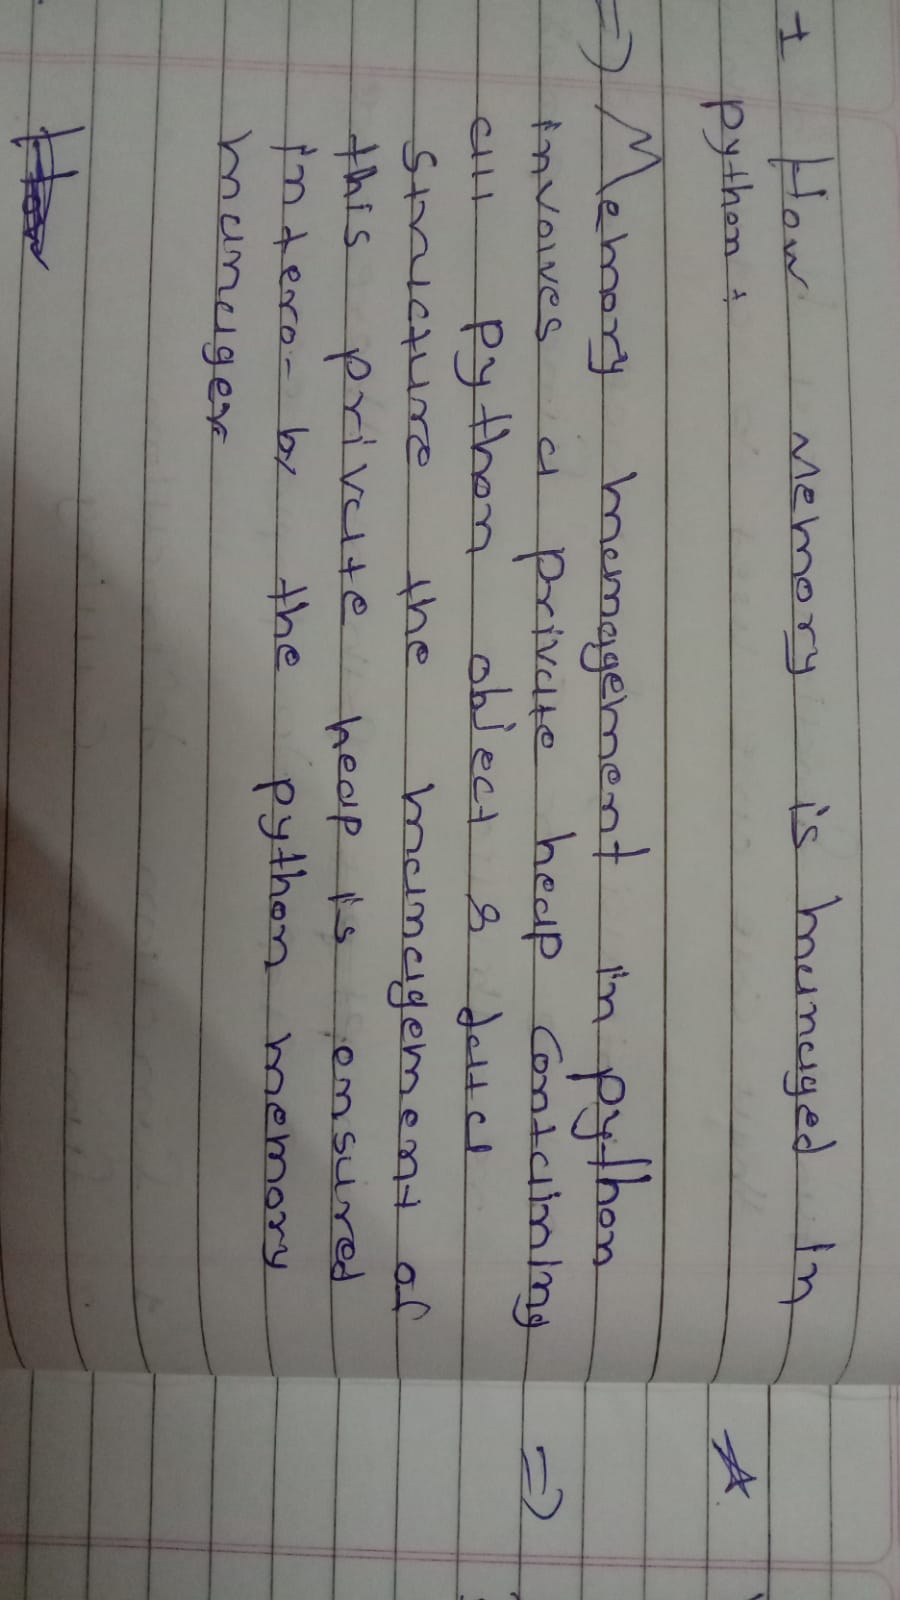 How Memory is managed in
python :
=> Memory management in python
involves a private heap containing
all python object & data
structure the management of
this private heap is ensured
intero- by the python memory
manager